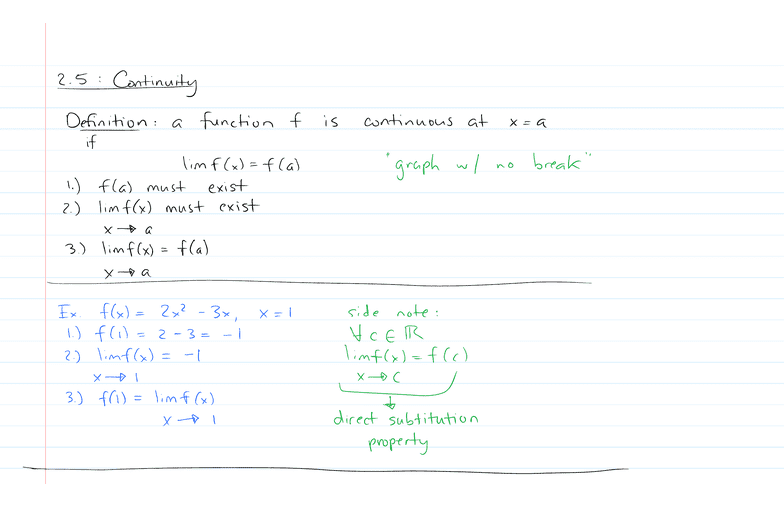 2.5 : Continuity
Definition: a function f is continuous at x = a
if
lim f(x) = f(a)
"graph w/ no break"
1.) f(a) must exist
2.) lim f(x) must exist
x → a
3.) lim f(x) = f(a)
x → a
Ex. f(x) = 2x² - 3x, x = 1
1.) f(1) = 2 - 3 = -1
2.) lim f(x) = -1
x → 1
3.) f(1) = lim f(x)
x → 1
side note:
∀ c ∈ ℝ
lim f(x) = f(c)
x → c
direct subtitution
property